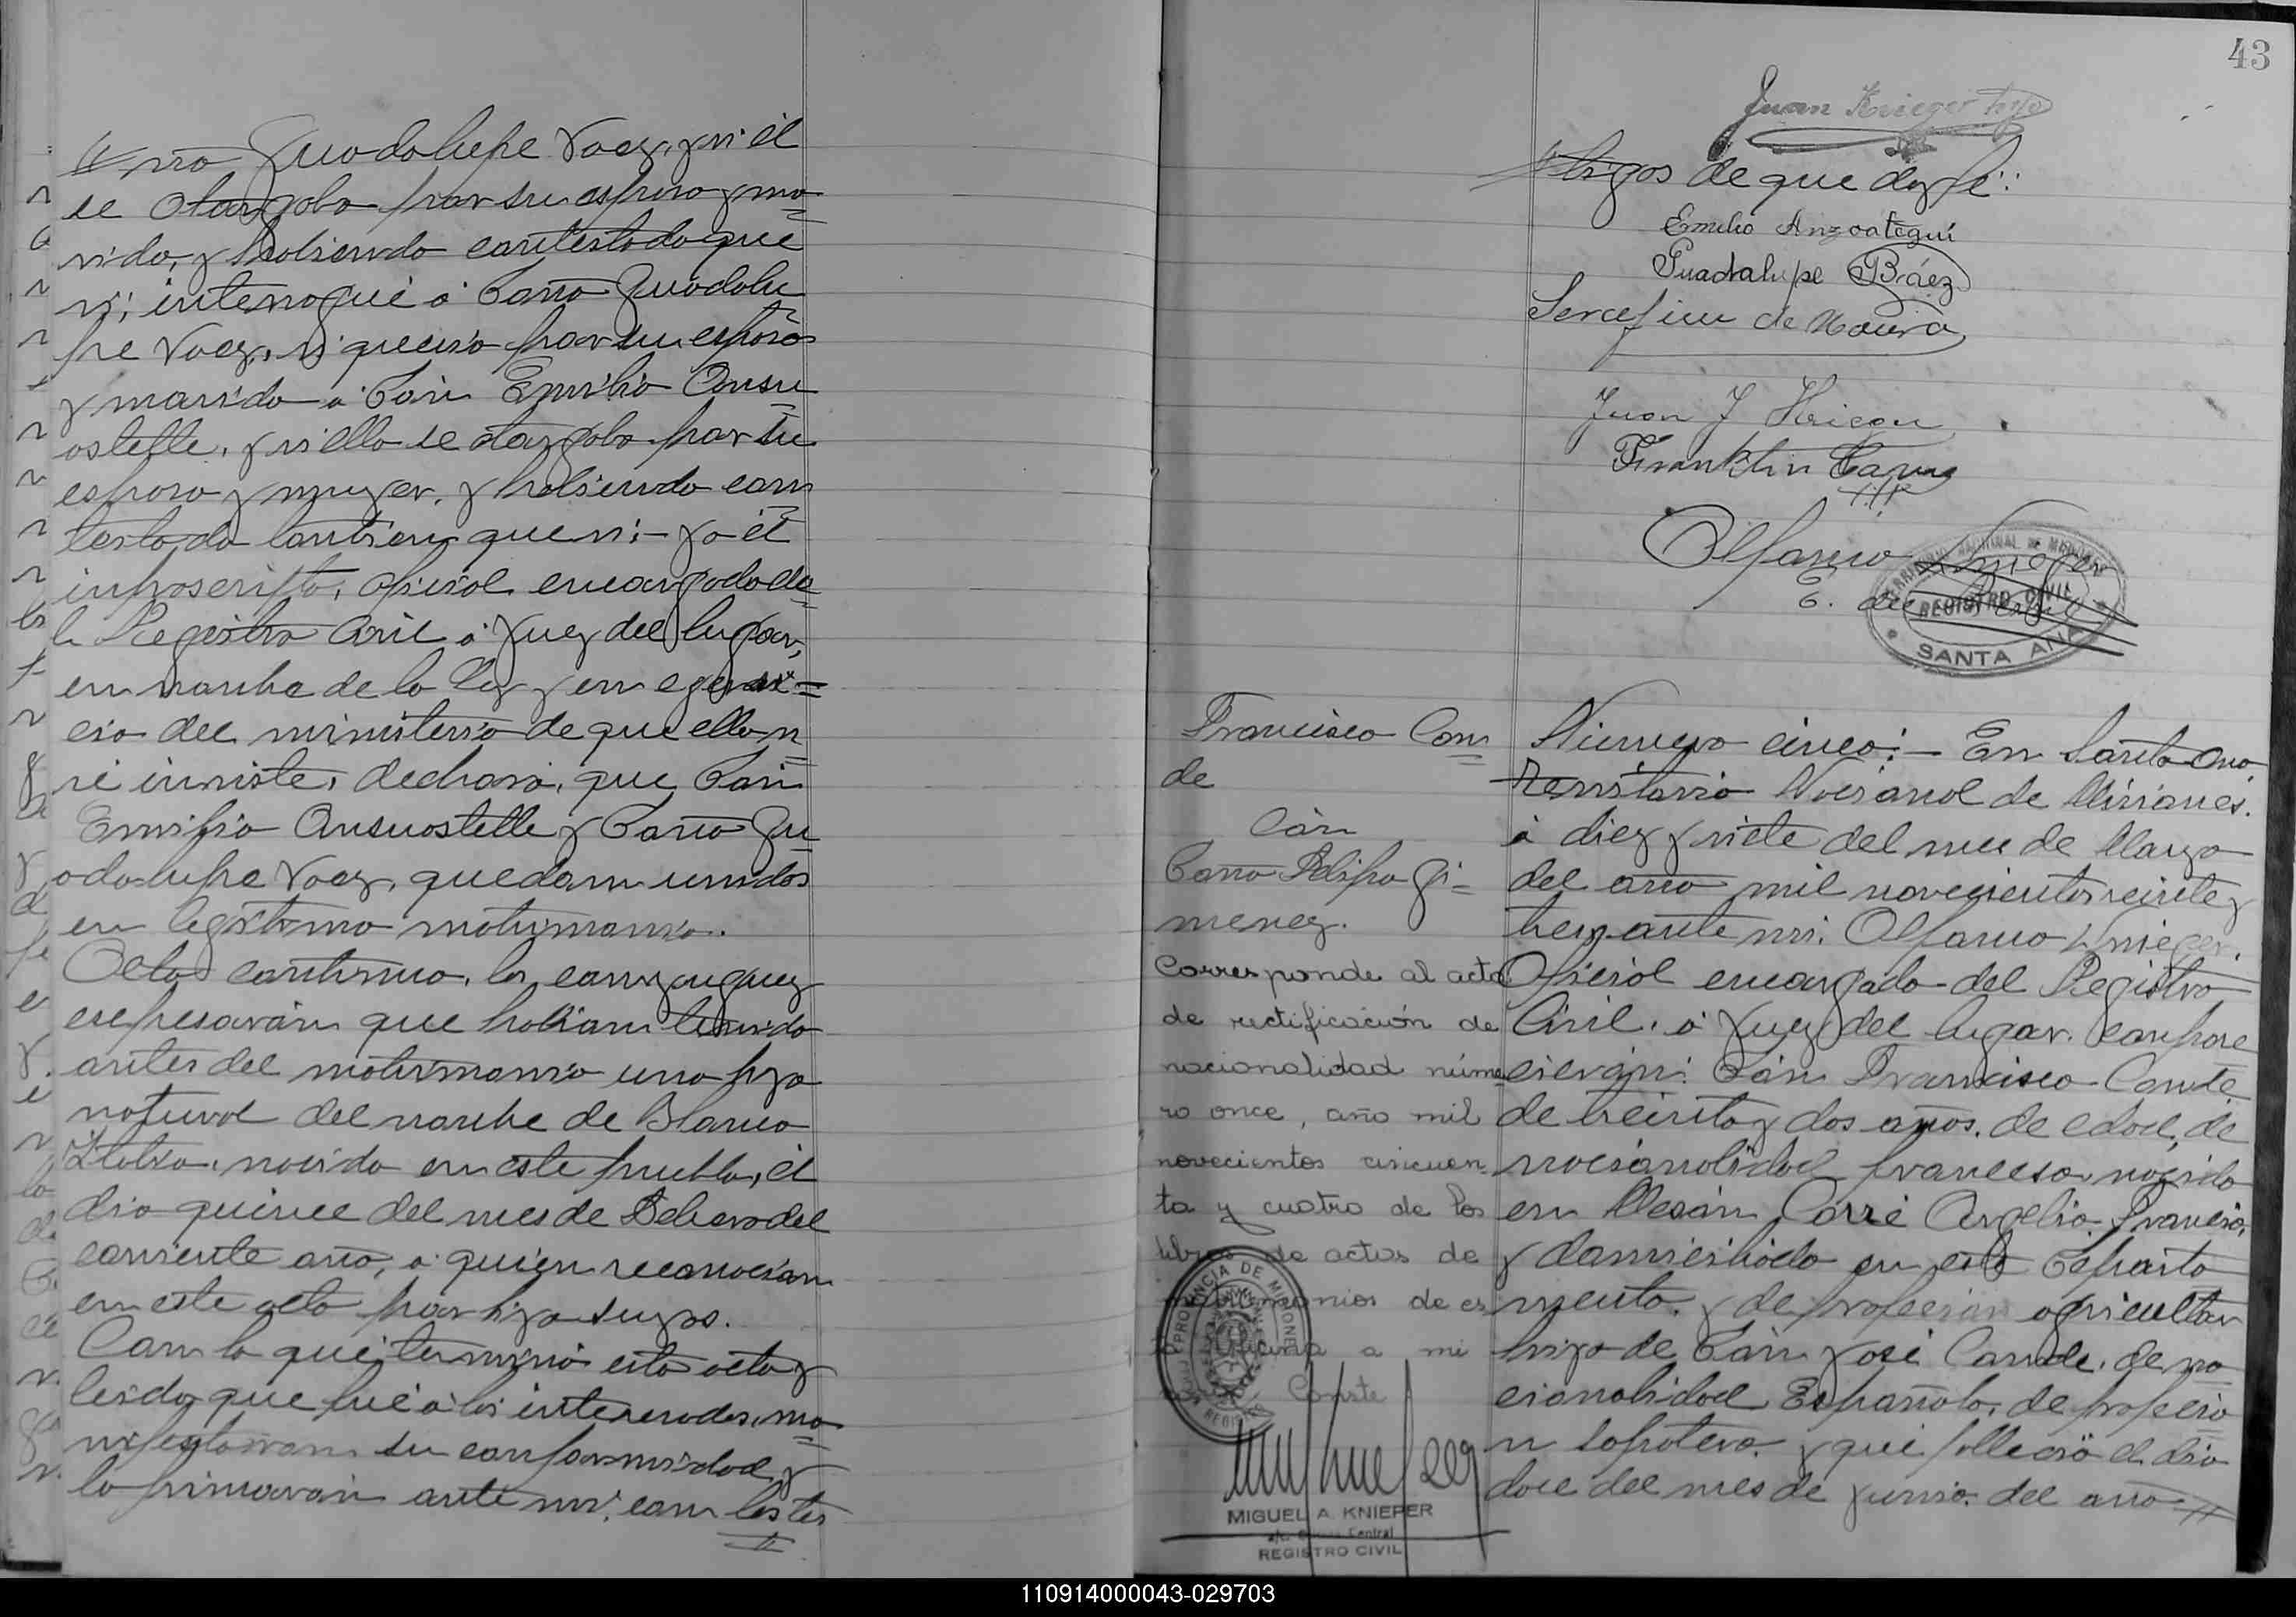 ña Guadalupe Vaez, y si él
se otorgaba por su esposo y ma=
rido, y habiendo contestado que
si; interrogué á Doña Guadalu
pe Vaez, si queria por su esposo
y marido á Don Emilio Ansu
ostelle, y si ella se otorgaba por su
esposa y muger, y habiendo con
testado tambien que si;- yo el
infrascripto, oficial encargado de
l Registro Civil ó Juez del lugar,
en nombre de la Ley y en egerci=
cio del ministerio de que ella m
e inviste, declaro, que Don
Emilio Ansuostelle y Doña Gu
adalupe Vaez, quedan unidos
en legitimo matrimonio.
Acto continuo, los conyugues
expresaron que habian tenido
antes del matrimonio una hija
natural del nombre de Blanca
nacida en este pueblo, el
dia quince del mes de Febrero del
corriente año, á quien reconocian
en este acto por hija suya.
Con lo que terminó esta acta y
leida que fué á los interesados, ma
nifestaron su conformidad, y
la firmaron ante mi, con los tes
43
Juan Krieger
tigos de que doy fé:
Emilio Anzoategui
Guadalupe Báez
Serafin de Moura
Juan J
Franklin
Alfonso Krieger
E. del
TERRITORIO NACIONAL DE MISIONES
REGISTRO CIVIL
SANTA ANA
Francisco Con
de
Con
Doña Felipa Gi=
menez.
Corresponde al acta
de rectificación de
nacionalidad núme
ro once, año mil
novecientos cincuen
ta y cuatro de los
libros de actas de
matrimonios de es
ta oficina a mi
Conste
PROVINCIA DE MISIONES
REGISTRO
MIGUEL A. KNIEPER
Central
REGISTRO CIVIL
Número cinco:- En Santa Ana
Territorio Nacional de Misiones.
á diez y siete del mes de Marzo
del año mil novecientos veinte y
tres, ante mi, Alfonso Krieger,
Oficial encargado del Registro
Civil, ó Juez del lugar. Compare
cieron: Don Francisco Conde
de treinta y dos años, de edad, de
nacionalidad francesa, nacido
en Argelia Francia,
y domiciliado en este Departa
mento, y de profesion agricultor
hijo de Don José Conde, de na
cionalidad Española, de profesio
n zapatero, y que fallecio el dia
doce del mes de Junio, del año
110914000043-029703